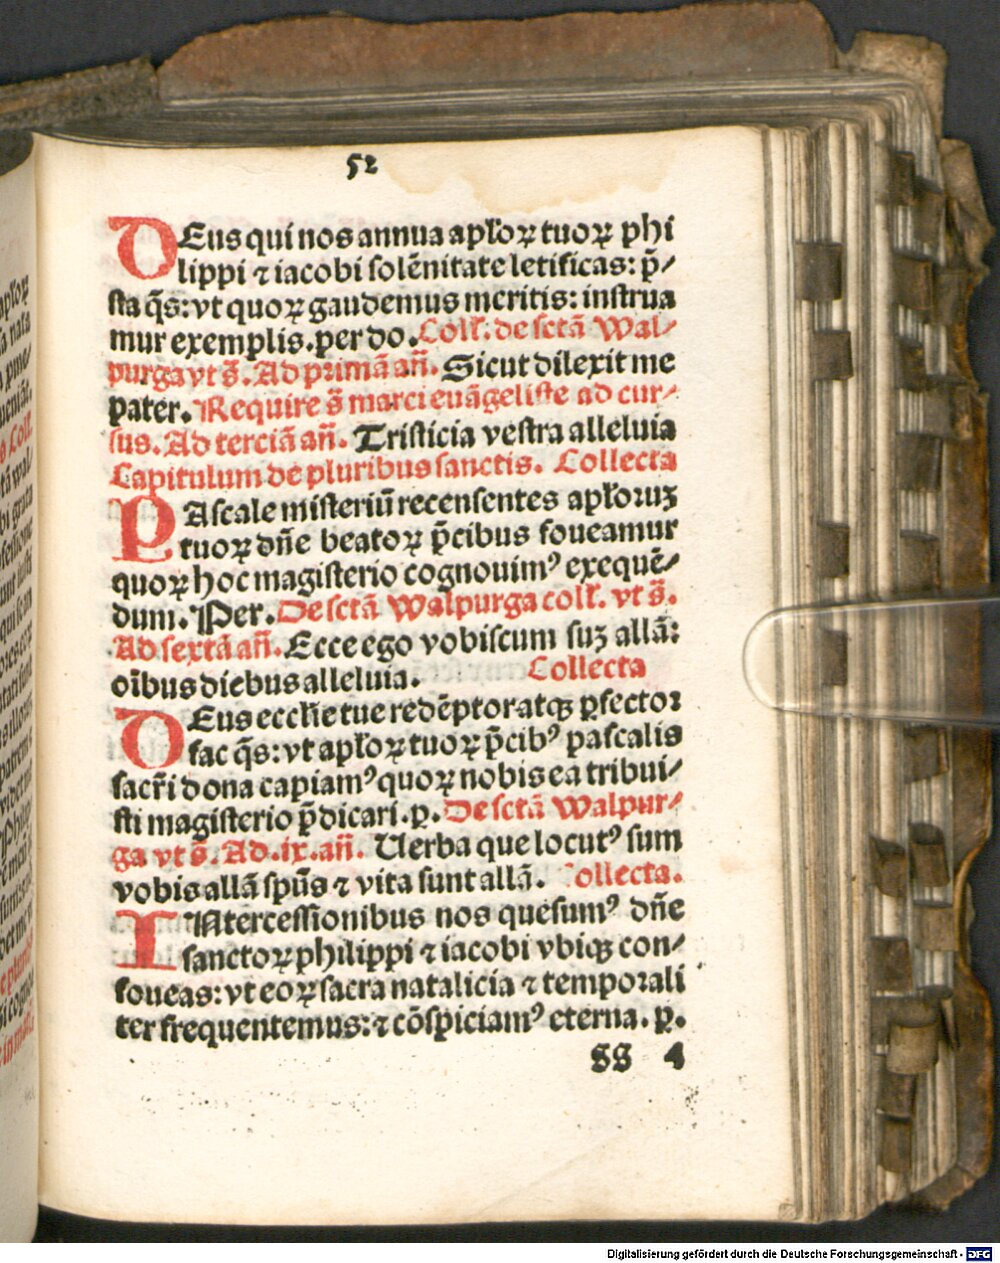 52
DEus qui nos annua apl'oꝝ tuoꝝ phi
lippi ⁊ iacobi solēnitate letificas: p̄/
sta q̄s: vt quoꝝ gaudemus meritis: instrua
mur exemplis. per do. Coll'. de sctā Wal/
purga vt s̄. Ad primā añ. Sicut dilexit me
pater. Require s̄ marci euāgeliste ad cur/
sus. Ad terciā añ. Tristicia vestra alleluia
Capitulum de pluribus sanctis. Collecta
PAscale misteriū recensentes apl'oruꝫ
tuoꝝ dn̄e beatoꝝ p̄cibus foueamur
quoꝝ hoc magisterio cognouimꝰ exequē/
dum. Per. De sctā Walpurga coll'. vt s̄.
Ad sextā añ. Ecce ego vobiscum suꝫ allā:
oībus diebus alleluia. Collecta
DEus eccl'ie tue redēptor atqꝫ ꝑfector
fac q̄s: vt apl'oꝝ tuoꝝ p̄cibꝰ pascalis
sacr̄i dona capiamꝰ quoꝝ nobis ea tribui/
sti magisterio p̄dicari. ꝑ. De sctā Walpur/
ga vt s̄. Ad .ix. añ. Uerba que locutꝰ sum
vobis allā spūs ⁊ vita sunt allā. Collecta.
INtercessionibus nos quesumꝰ dn̄e
sanctoꝝ philippi ⁊ iacobi vbiqꝫ con/
foueas: vt eoꝝ sacra natalicia ⁊ temporali
ter frequentemus: ⁊ cōspiciamꝰ eterna. ꝑ.
SS 4
Digitalisierung gefördert durch die Deutsche Forschungsgemeinschaft - DFG